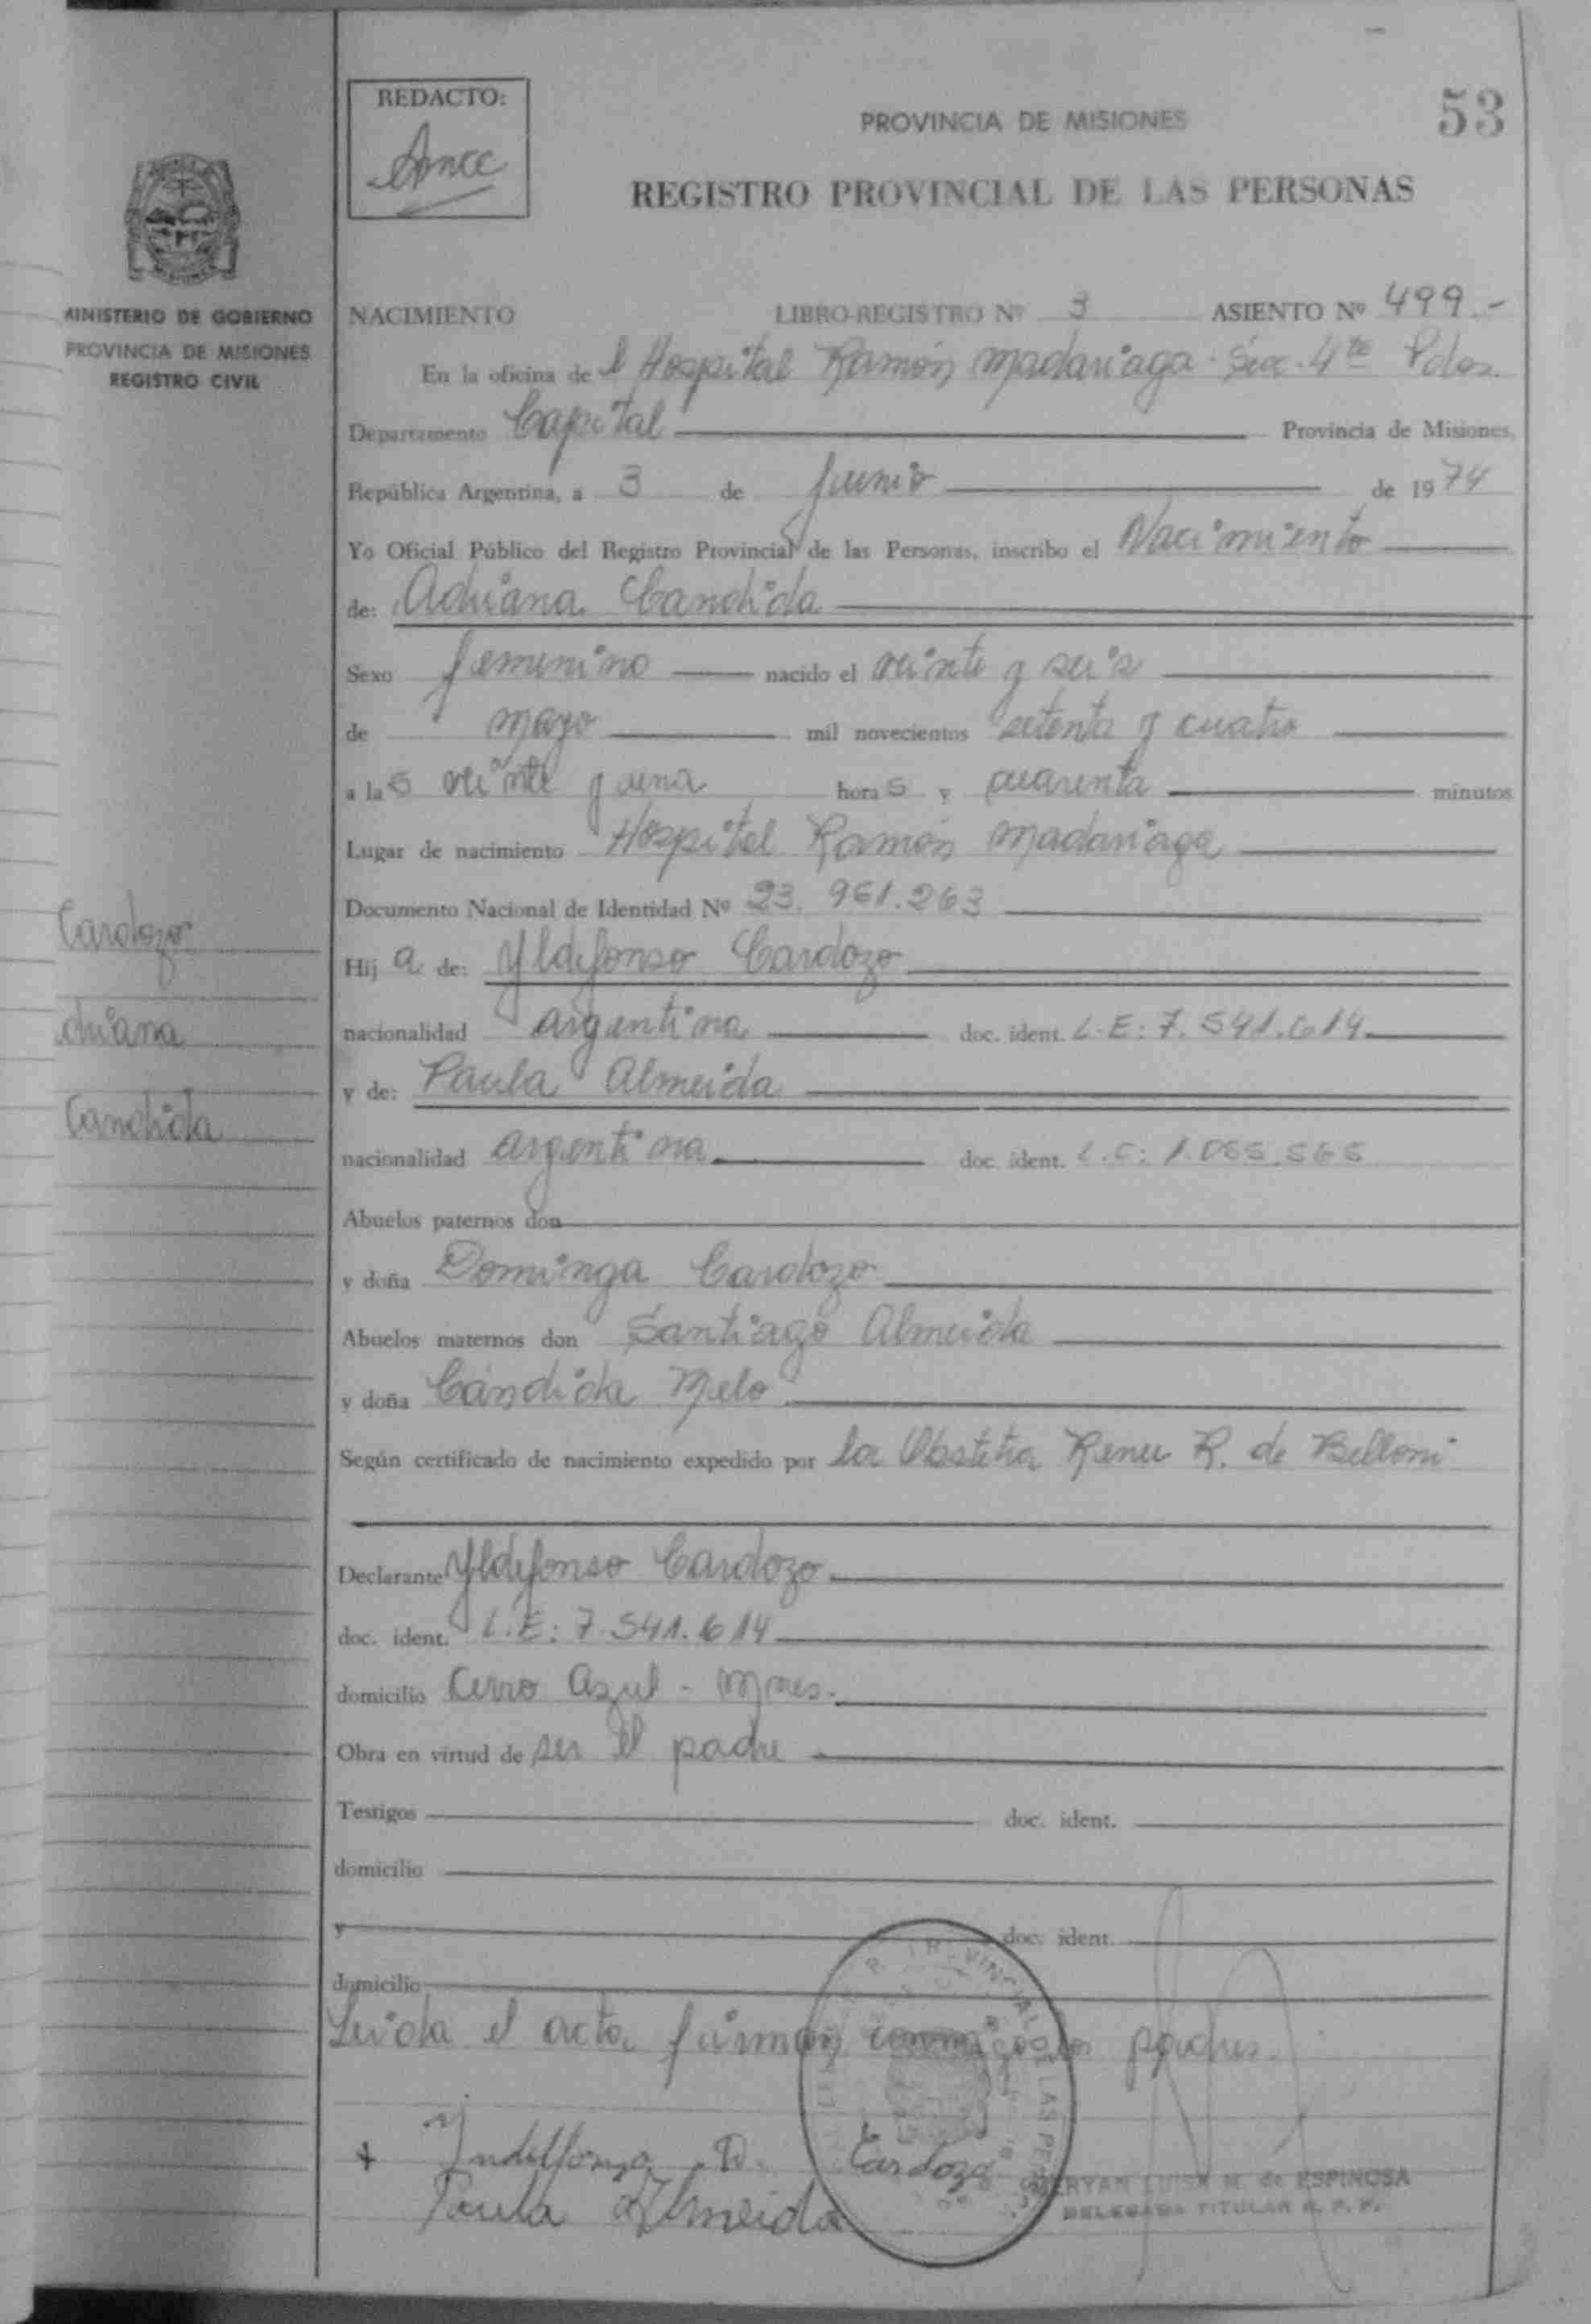 REDACTO:
PROVINCIA DE MISIONES
53
REGISTRO PROVINCIAL DE LAS PERSONAS
MINISTERIO DE GOBIERNO
PROVINCIA DE MISIONES
REGISTRO CIVIL
NACIMIENTO LIBRO-REGISTRO Nº 3 ASIENTO Nº 499.-
En la oficina de l Hospital Ramón Madariaga. Sec. 4ta Pdas.
Departamento Capital Provincia de Misiones,
República Argentina, a 3 de Junio de 1974
Yo Oficial Público del Registro Provincial de las Personas, inscribo el Nacimiento
de: Adriana Candida
Sexo femenino nacido el veinte y seis
de mayo mil novecientos setenta y cuatro
a las veinte y una horas y cuarenta minutos
Lugar de nacimiento Hospital Ramón Madariaga
Documento Nacional de Identidad Nº 23.961.263
Cardozo
Hija de: Yldefonso Cardozo
nacionalidad argentina doc. ident. L.E: 7.541.614
driana
y de: Paula Almeida
Candida
nacionalidad argentina doc. ident. L.C: 1.055.565
Abuelos paternos don
y doña Dominga Cardozo
Abuelos maternos don Santiago Almeida
y doña Cándida Melo
Según certificado de nacimiento expedido por la Obstetra Renee R. de Belloni
Declarante Yldefonso Cardozo
doc. ident. L.E: 7.541.614
domicilio Cerro Azul - Mnes.
Obra en virtud de ser el padre
Testigos doc. ident.
domicilio
y doc. ident.
domicilio
Leida el acta firman conmigo los padres.
Yndelfonzo D. Cardozo
Paula Almeida
LUISA M. de ESPINOSA
DELEGADA TITULAR R. P. P.